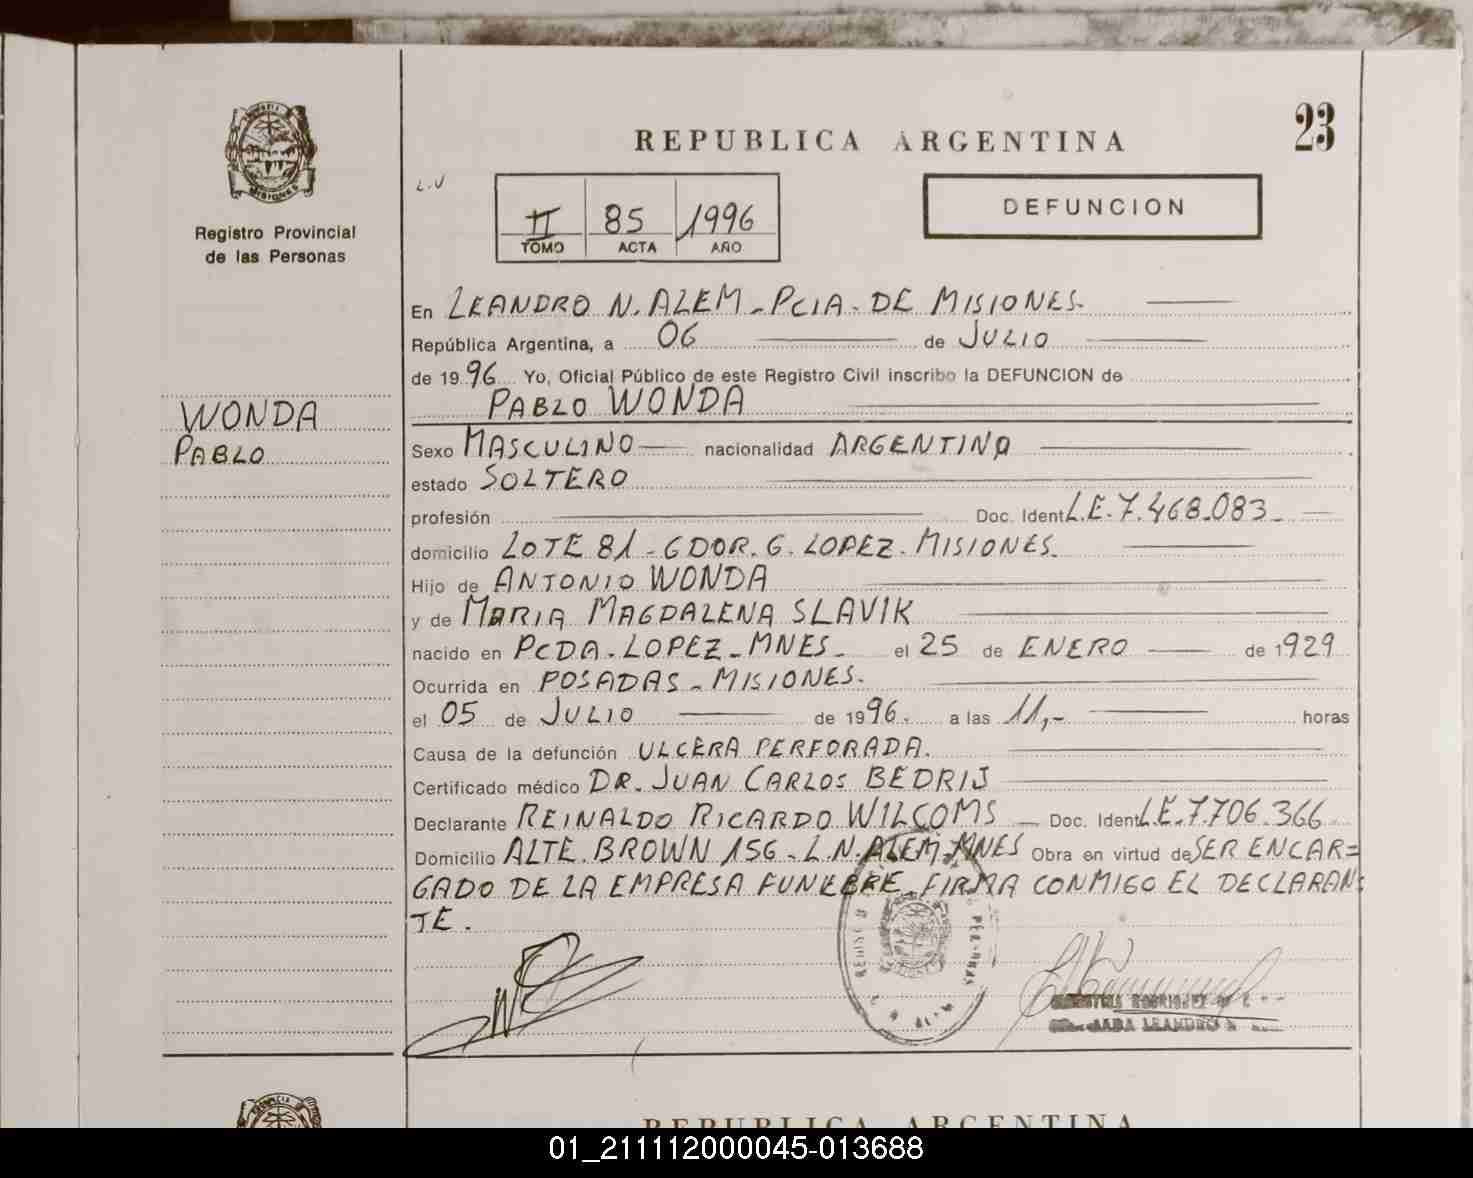 23
REPUBLICA ARGENTINA
MISIONES
Registro Provincial
de las Personas
L.V
II 85 1996
TOMO ACTA AÑO
DEFUNCION
WONDA
PABLO
En LEANDRO N. ALEM - PCIA. DE MISIONES.
República Argentina, a 06 de JULIO
de 1996 Yo, Oficial Público de este Registro Civil inscribo la DEFUNCION de
PABLO WONDA
Sexo MASCULINO nacionalidad ARGENTINO
estado SOLTERO
profesión Doc. Ident L.E. 7.468.083
domicilio LOTE 81 - GDOR. G. LOPEZ. MISIONES.
Hijo de ANTONIO WONDA
y de MARIA MAGDALENA SLAVIK
nacido en PCDA. LOPEZ - MNES. el 25 de ENERO de 1929
Ocurrida en POSADAS - MISIONES.
el 05 de JULIO de 1996. a las 11,- horas
Causa de la defunción ULCERA PERFORADA.
Certificado médico DR. JUAN CARLOS BEDRIJ
Declarante REINALDO RICARDO WILCOMS Doc. Ident L.E. 7.706.366
Domicilio ALTE. BROWN 156 - L.N. ALEM. MNES Obra en virtud de SER ENCAR=
GADO DE LA EMPRESA FUNEBRE. FIRMA CONMIGO EL DECLARAN=
TE.
REPUBLICA ARGENTINA
01_211112000045-013688